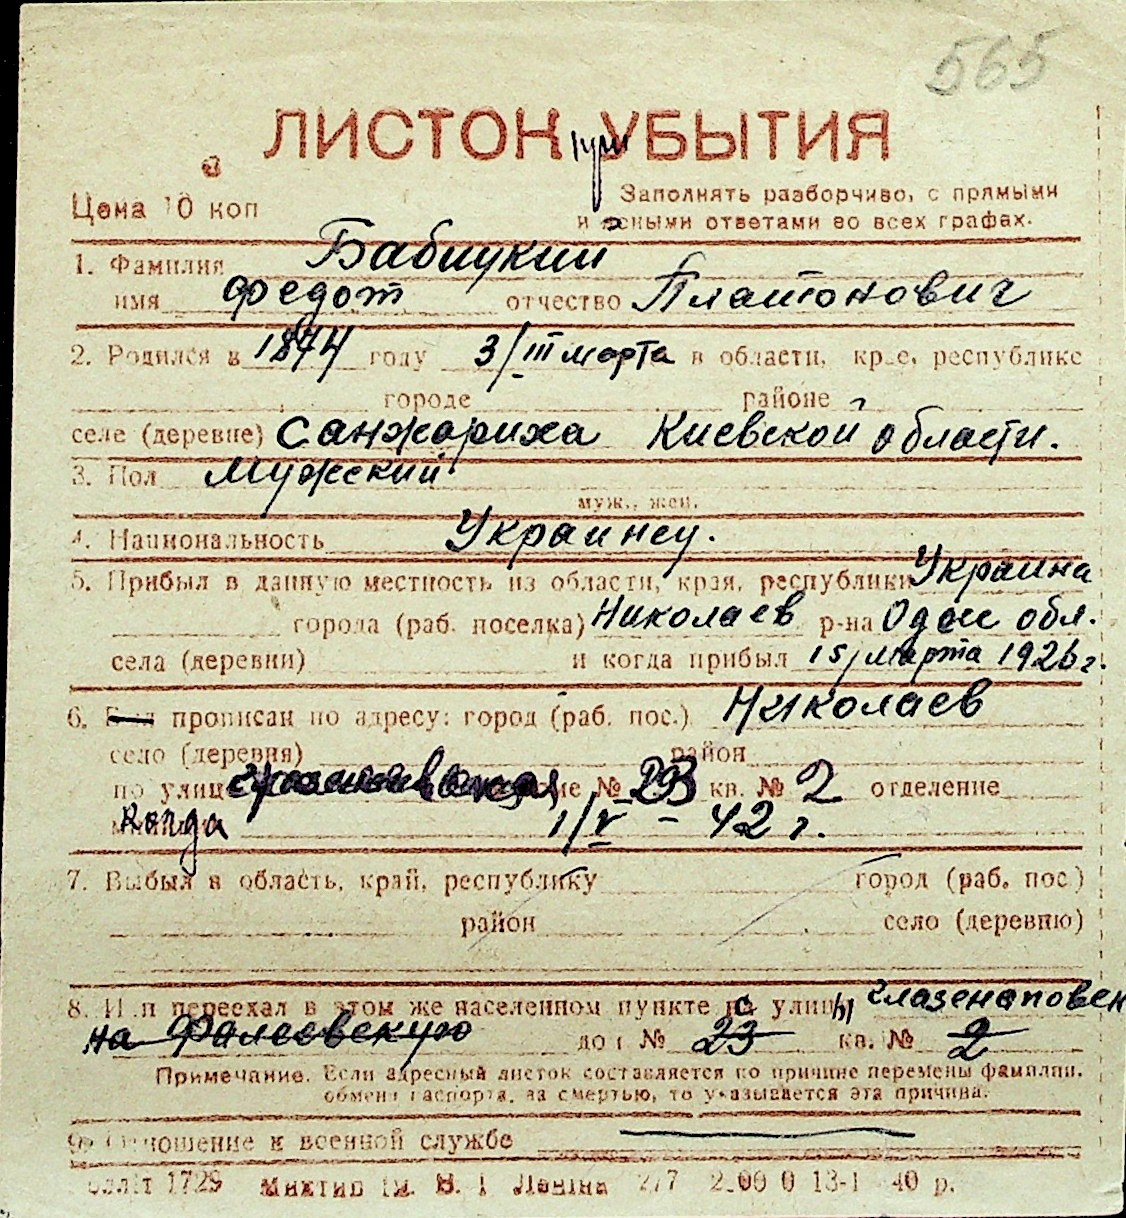 565
ЛИСТОК при УБЫТИЯ
Цена 10 коп
Заполнять разборчиво, с прямыми
и ясными ответами во всех графах.
1. Фамилия Бабицкий
имя Федот отчество Платонович
2. Родился в 1874 году 3/III марта в области, крае, республике
городе районе
селе (деревне) Санжариха Киевской области.
3. Пол Мужский
муж., жен.
4. Национальность Украинец.
5. Прибыл в данную местность из области, края, республики Украина
города (раб. поселка) Николаев р-на Одес обл.
села (деревни) и когда прибыл 15/марта 1926 г.
6. Был прописан по адресу: город (раб. пос.) Николаев
село (деревня) район
по улице № 23 кв. № 2 отделение
Когда 1/V - 42 г.
7. Выбыл в область, край, республику город (раб. пос.)
район село (деревню)
8. Или переехал в этом же населенном пункте с улицы Глазенаповск
на Фалеевскую дом № 23 кв. № 2
Примечание. Если адресный листок составляется по причине перемены фамилии,
обмена паспорта, за смертью, то указывается эта причина.
9. Отношение к военной службе
1729 Миктип Ім. В. І Леніна 2/7 2.00 0 13-1 40 р.